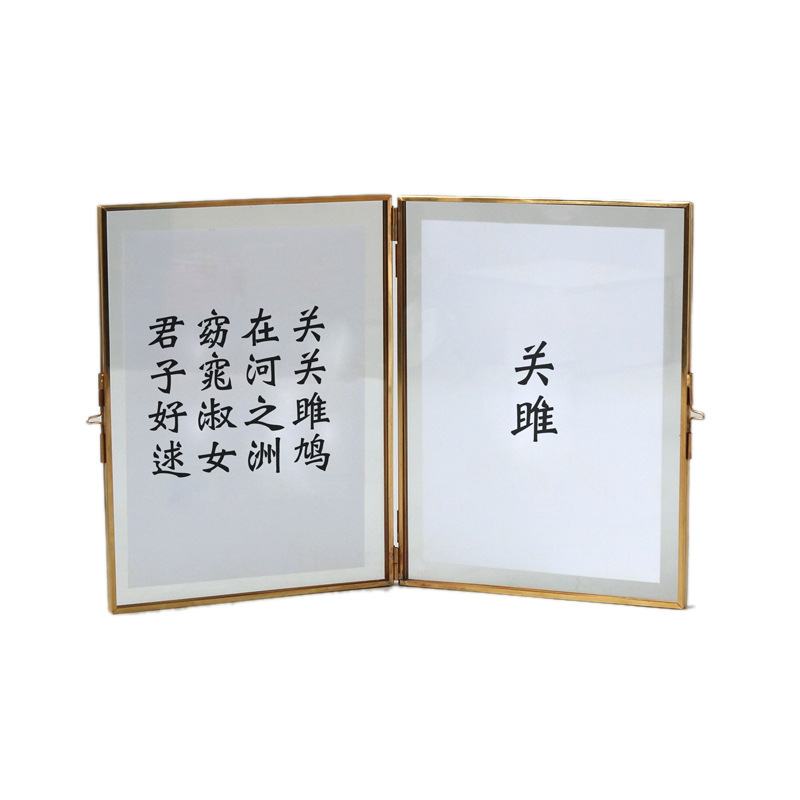 关雎
关关雎鸠
在河之洲
窈窕淑女
君子好逑